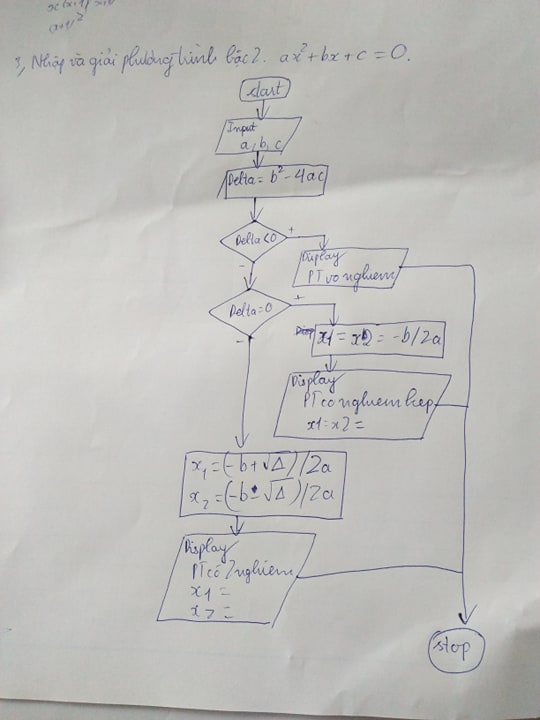 x(x+1)
(x+1)²
3, Nhập và giải phương trình bậc 2. ax² + bx + c = 0.
start
Input
a, b, c
Delta = b² - 4ac
Delta < 0
+
-
Display
PT vo nghiem
Delta = 0
+
-
x1 = x2 = -b/2a
Display
PT co nghiem kep
x1 = x2 =
x₁ = (-b + √Δ)/2a
x₂ = (-b - √Δ)/2a
Display
PT có 2 nghiem
x1 =
x2 =
stop